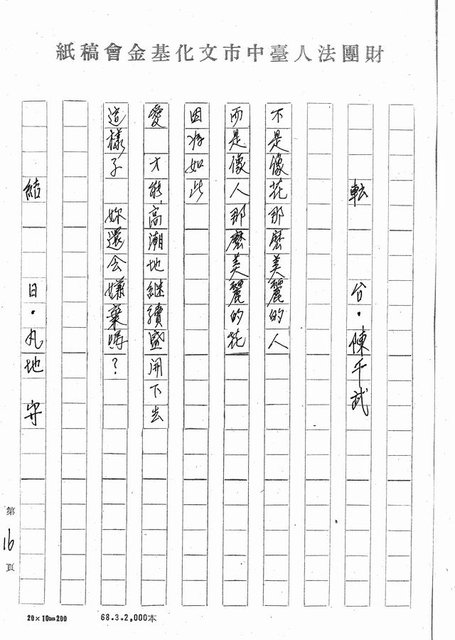 財團法人臺中市文化基金會稿紙
転 台・陳千武
不是像花那麼美麗的人
而是像人那麼美麗的花
因為如此
愛 才能高潮地繼續盛開下去
這樣子 妳還会嫌棄嗎？
結 日・丸地守
第16頁
20×10=200
68.3.2,000本